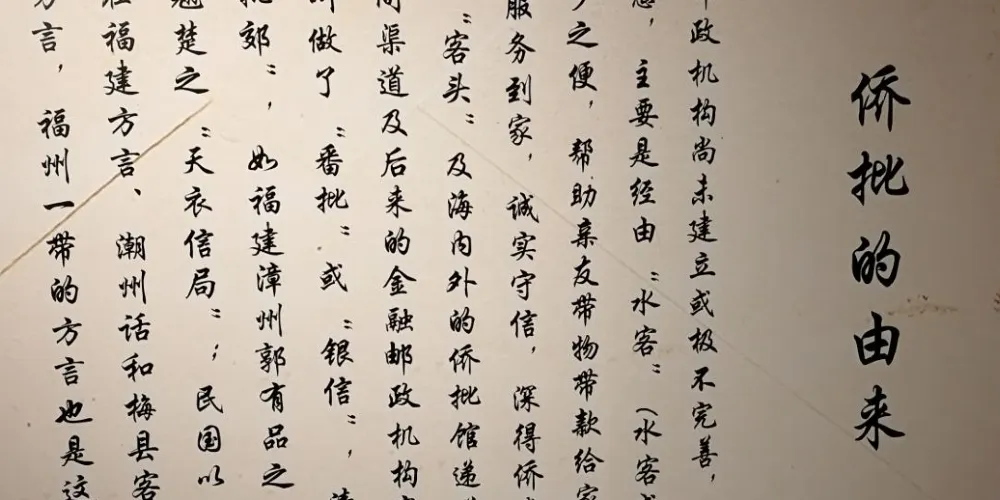 侨批的由来
政机构尚未建立或极不完善，
主要是经由“水客”（水客
之便，帮助亲友带物带款给家
服务到家，诚实守信，深得侨
“客头”及海内外的侨批馆递
渠道及后来的金融邮政机构
做了“番批”或“银信”，
郊”，如福建漳州郭有品之
楚之“天衣信局”；民国以
福建方言、潮州话和梅县客
方言，福州一带的方言也是这